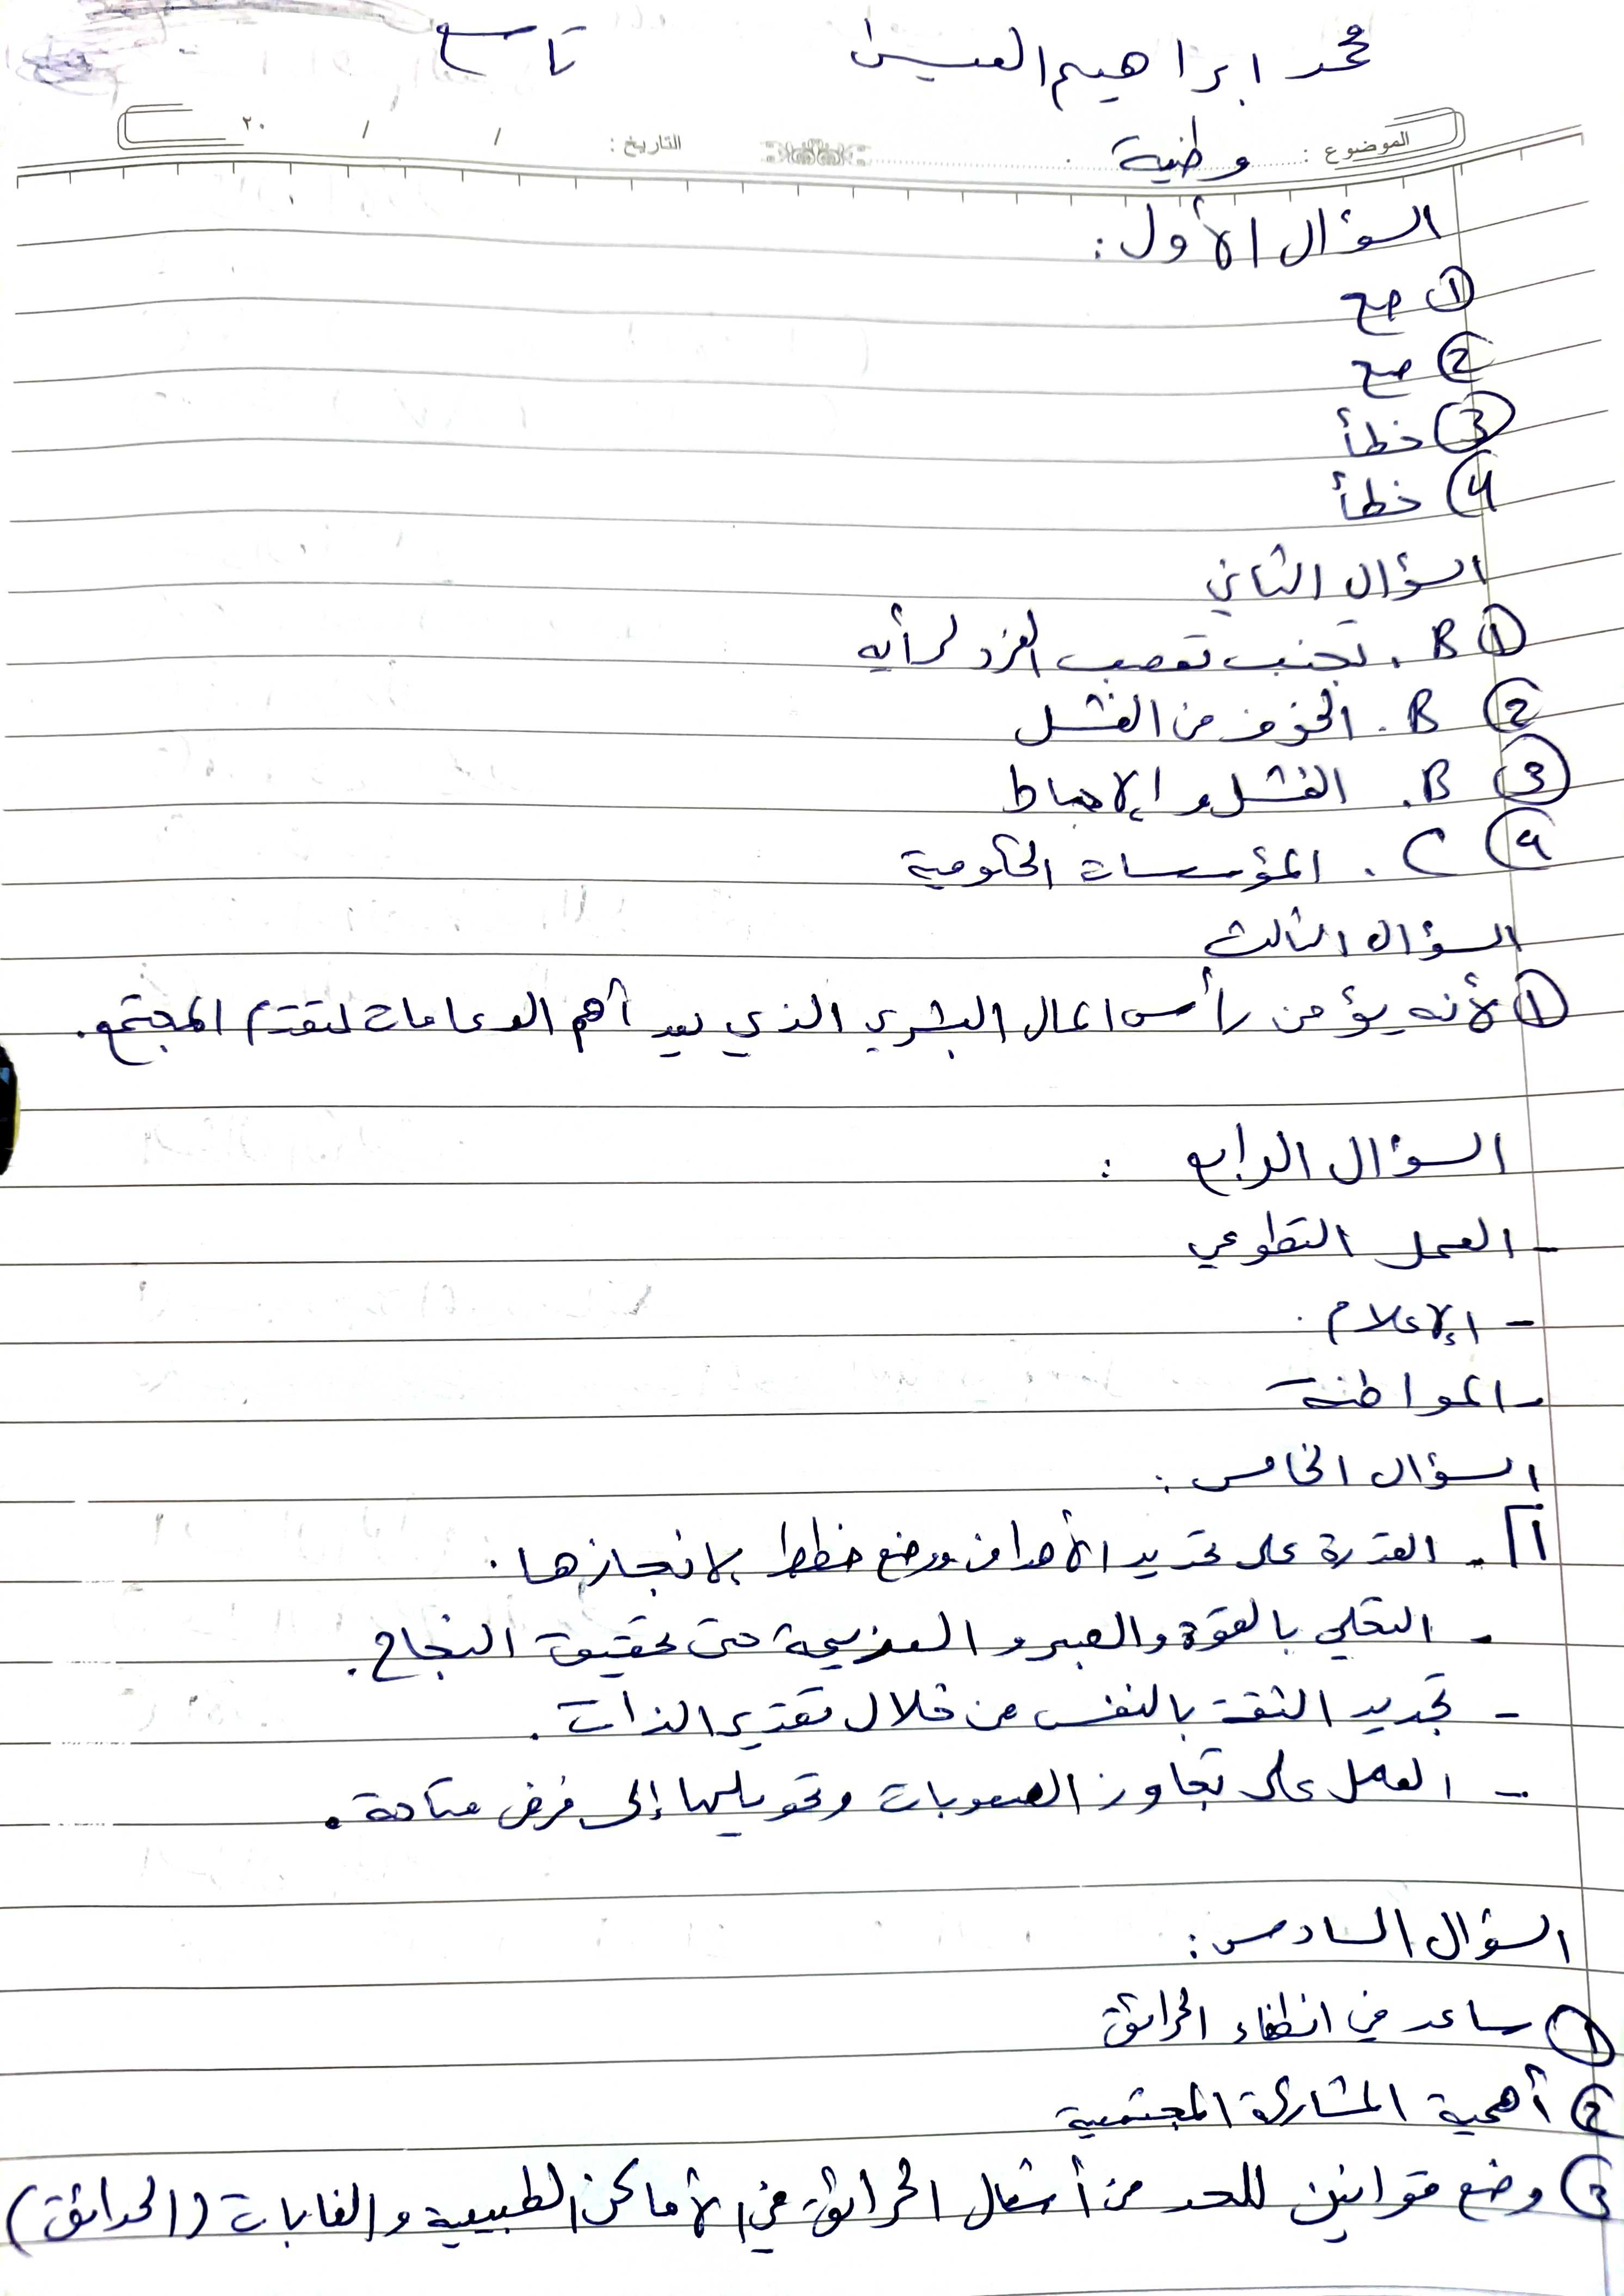 محمد ابراهيم العيسى تاسع
الموضوع : وطنية التاريخ : / / ٢٠
السؤال الأول :
① صح
② صح
③ خطأ
④ خطأ
السؤال الثاني
① B . تجنب تعصب الفرد لرأيه
② B . الخوف من الفشل
③ B . الفشل و الإحباط
④ C . المؤسسات الحكومية
السؤال الثالث
① لأنه يؤمن رأس المال البشري الذي يعد أهم الدعامات لتقدم المجتمع .
السؤال الرابع :
- العمل التطوعي
- الإعلام .
- المواطنة
السؤال الخامس :
1 - القدرة على تحديد الأهداف ووضع خطط لانجازها .
- التحلي بالقوة والصبر و العزيمة حتى تحقيق النجاح .
- تجديد الثقة بالنفس من خلال تقدير الذات .
- العمل على تجاوز الصعوبات وتحويلها إلى فرض متاحة .
السؤال السادس :
① ساعد في انطفاء الحرائق
② أهمية المشاركة المجتمعية
③ وضع قوانين للحد من أشعال الحرائق في الأماكن الطبيعية و الغابات (الحدائق)